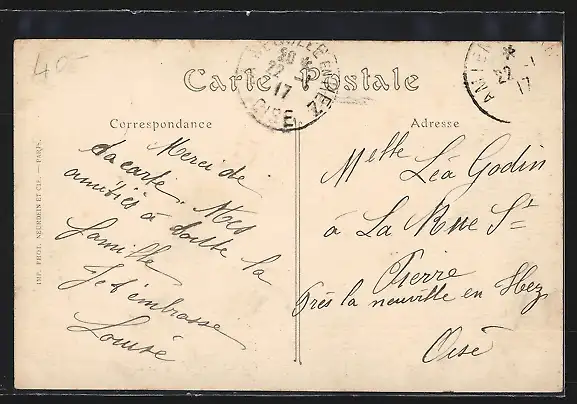 40-
NEUVILLE EN HEZ
22
17
OISE
AMIENS
22
17
Carte Postale
Correspondance
Adresse
IMP. PHOT. NEURDEIN ET CIE. — PARIS.
Merci de
ta carte. Mes
amitiés à toute la
famille
Je t'embrasse
Louise
Melle Léa Godin
à La Rue St
Pierre
Près la neuville en Hez
Oise